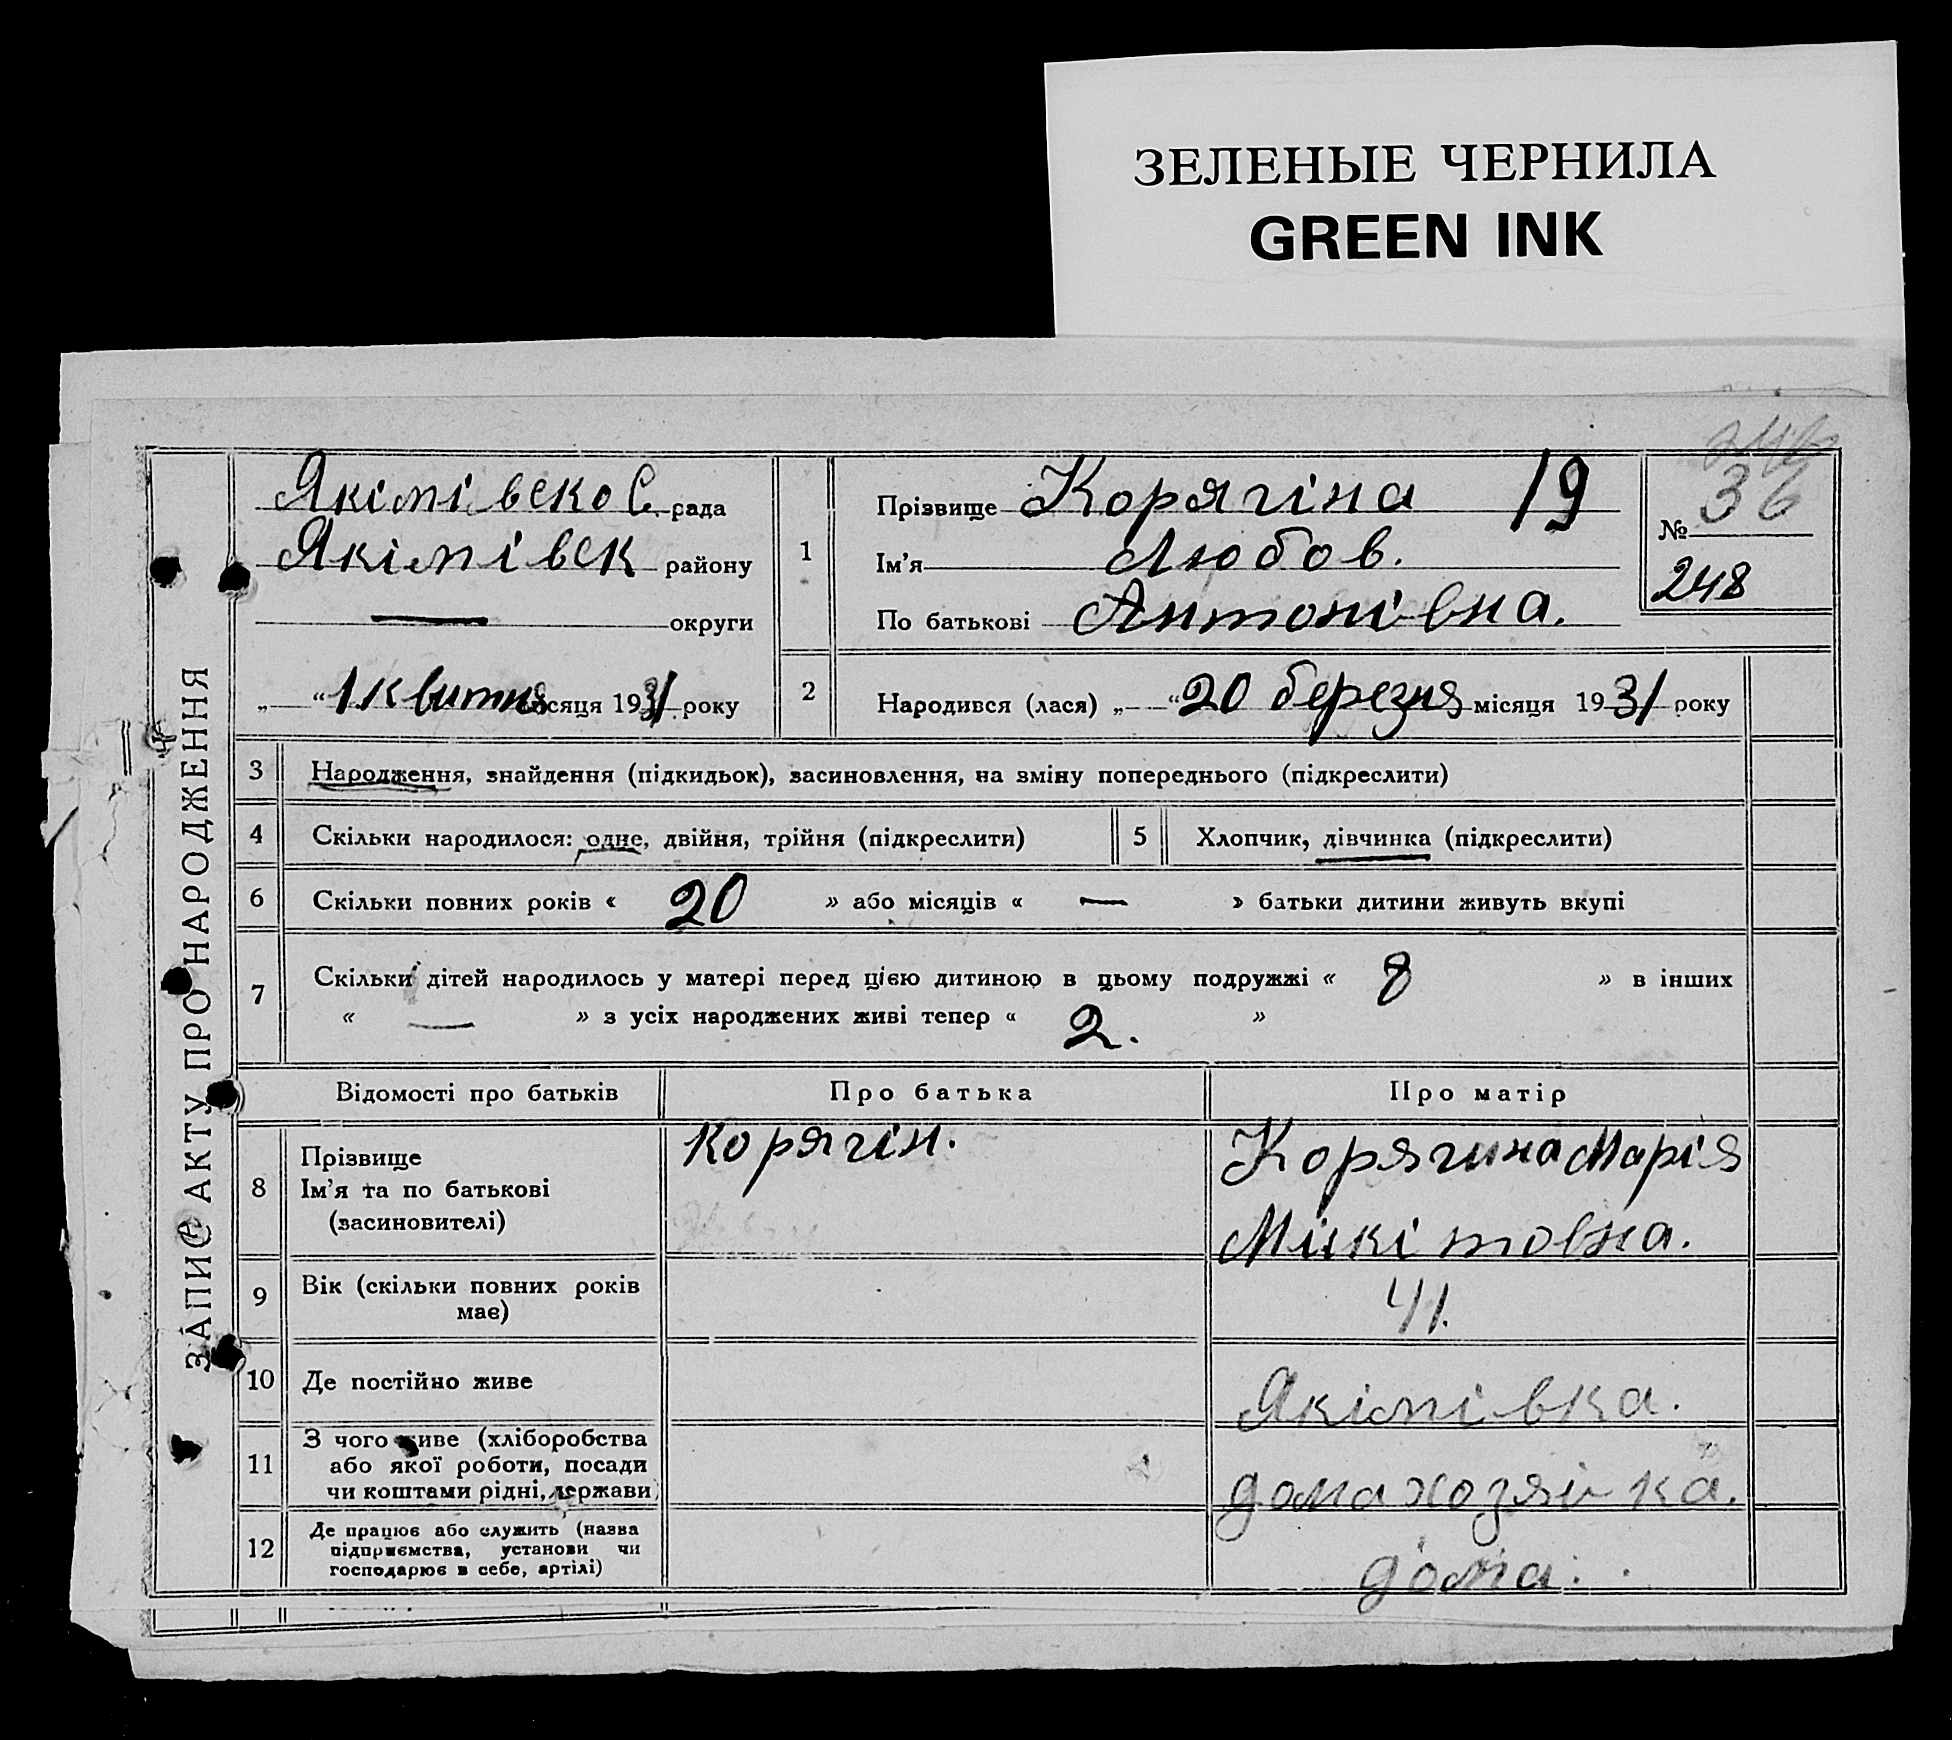 ЗЕЛЕНЫЕ ЧЕРНИЛА
GREEN INK
ЗАПИС АКТУ ПРО НАРОДЖЕННЯ
Якімівско С. рада
Якімівек району
— округи
„ “ 1 квитня місяця 1931 року
1
Прізвище Корягіна 19
Ім'я Любов.
По батькові Антонівна.
№ 36
248
2
Народився (лася) „ “ 20 березня місяця 1931 року
3 Народження, знайдення (підкидьок), засиновлення, на зміну попереднього (підкреслити)
4 Скільки народилося: одне, двійня, трійня (підкреслити)
5 Хлопчик, дівчинка (підкреслити)
6 Скільки повних років « 20 » або місяців « — » батьки дитини живуть вкупі
7 Скільки дітей народилось у матері перед цією дитиною в цьому подружжі « 8 » в інших
« — » з усіх народжених живі тепер « 2. »
Відомості про батьків Про батька Про матір
8
Прізвище
Ім'я та по батькові
(засиновителі)
Корягін.
Корягина Марія
Микітовна.
9 Вік (скільки повних років
має)
41.
10 Де постійно живе
Якімівка.
11
З чого живе (хліборобства
або якої роботи, посади
чи коштами рідні, держави)
домахозяйка.
12
Де працює або служить (назва
підприємства, установи чи
господарює в себе, артілі)
дома.